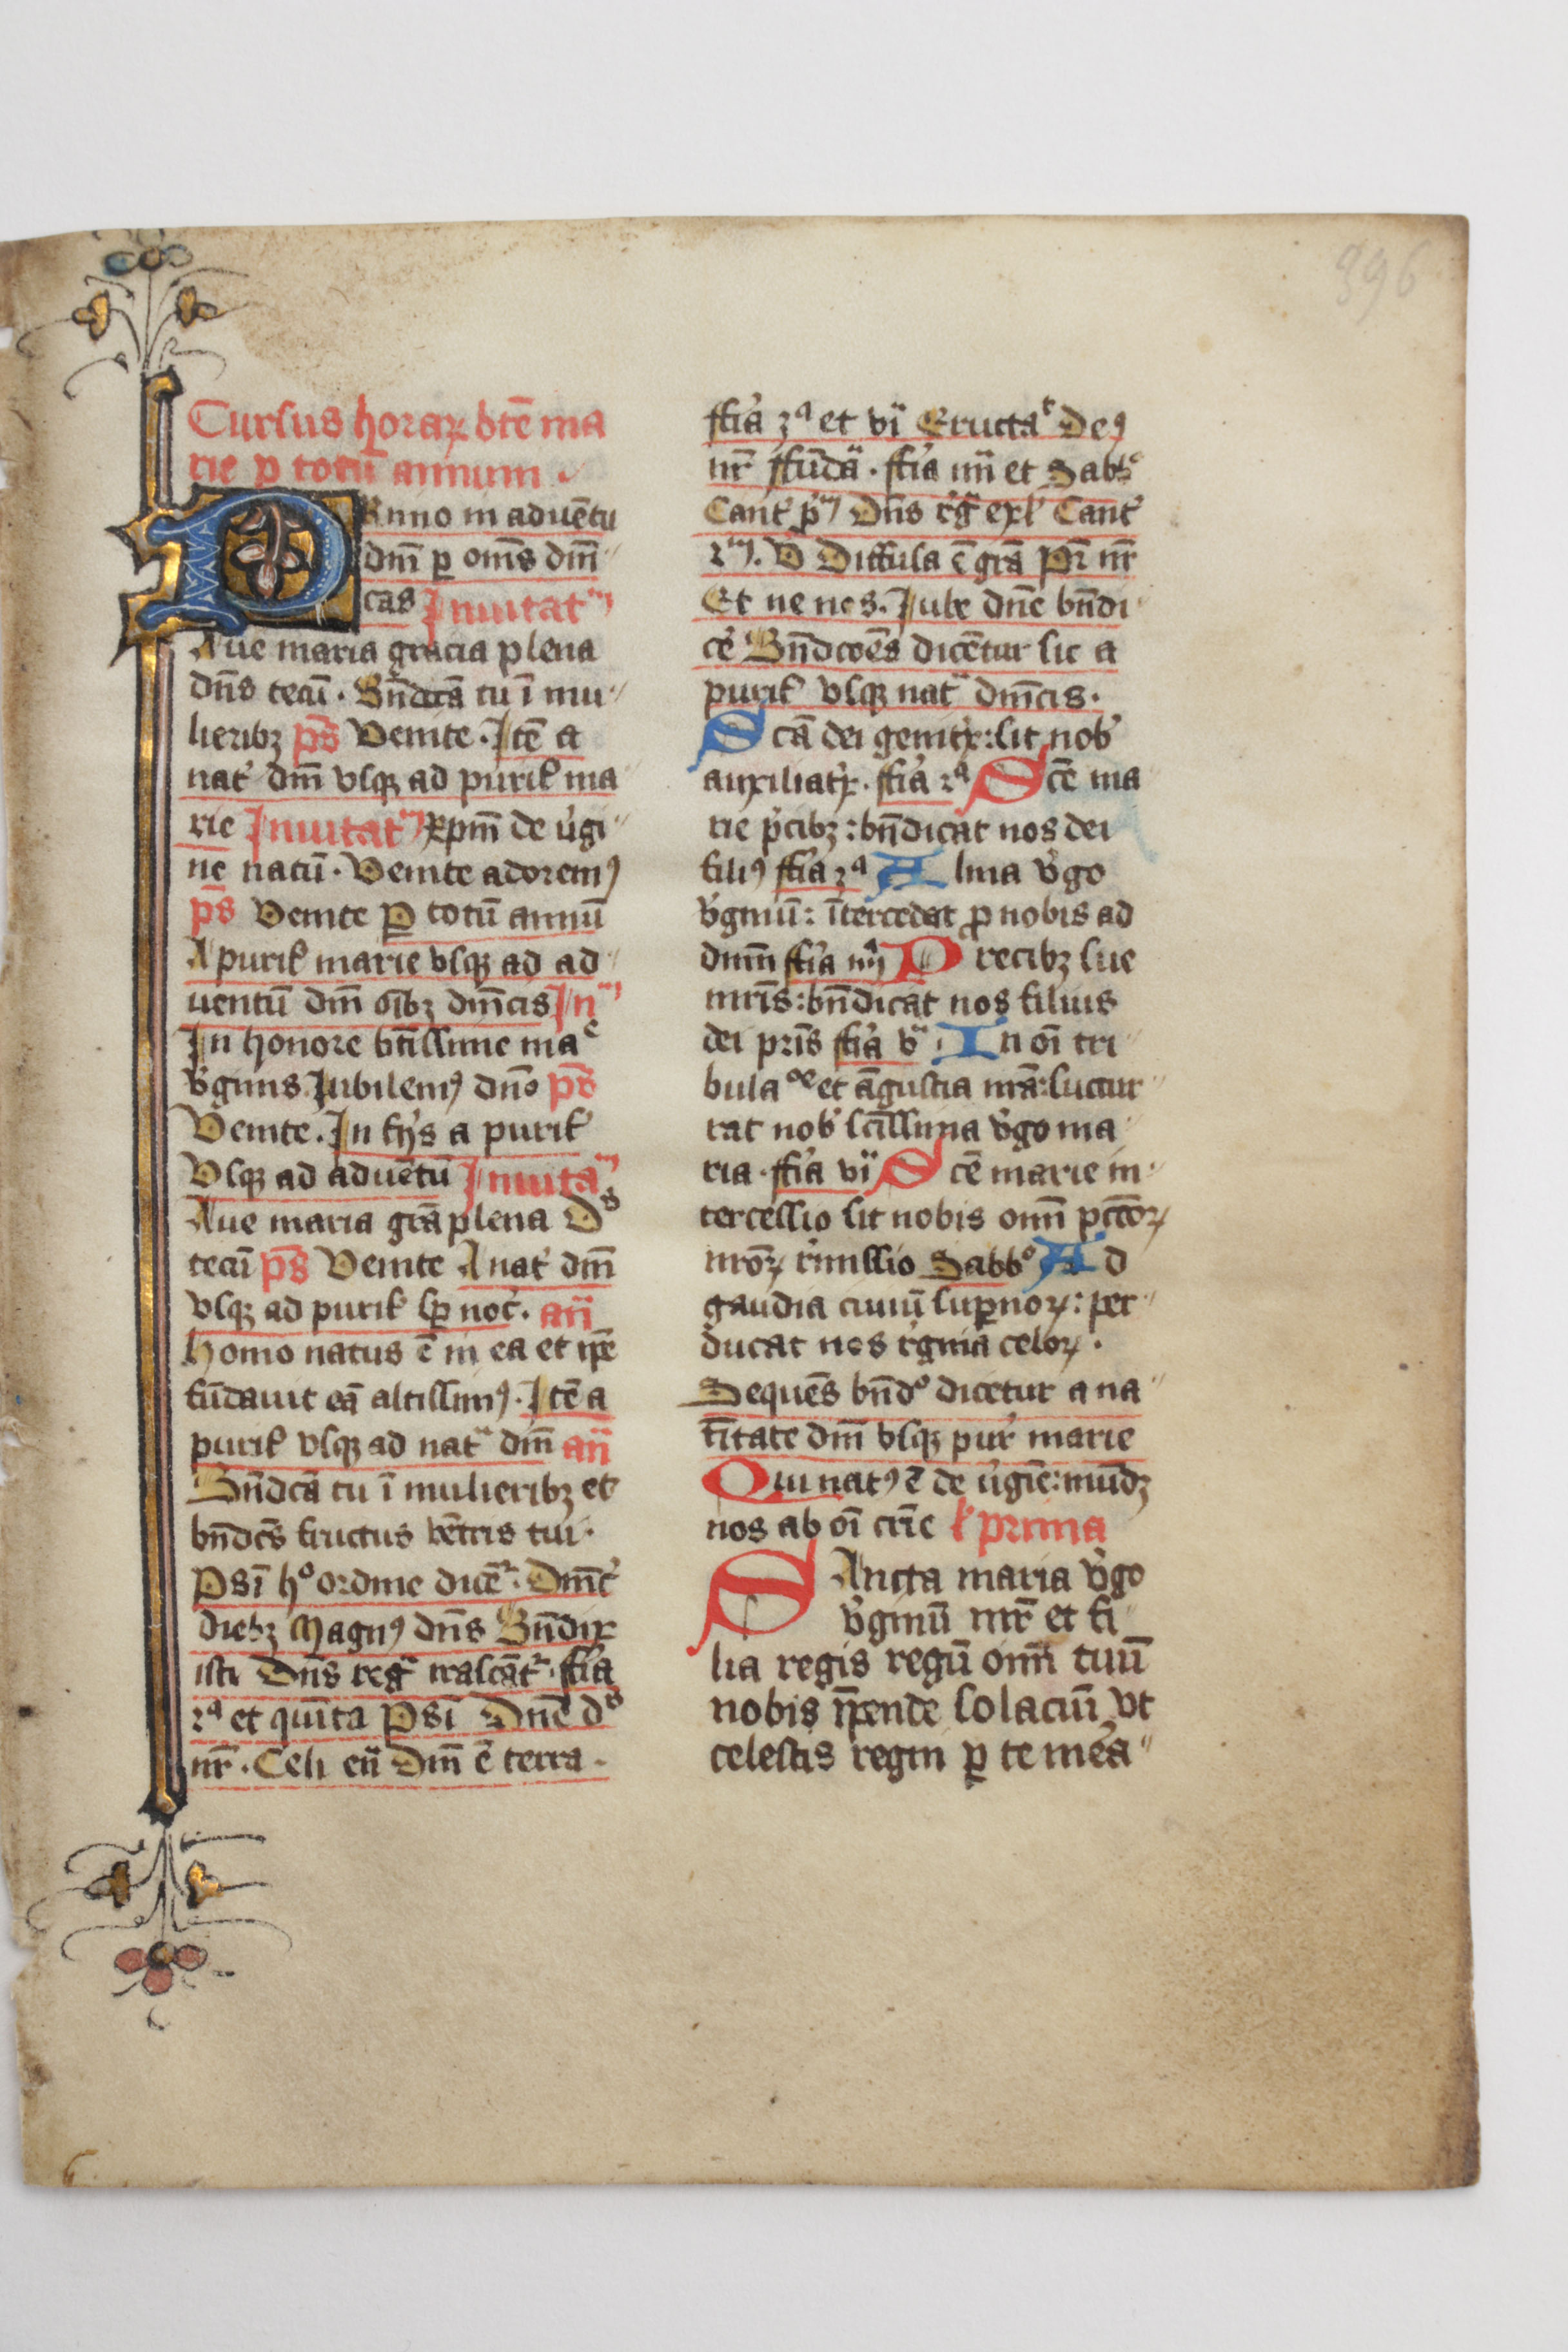 396
Cursus horaꝝ btē ma
rie ꝑ totū annum
PRimo in aduētu
dnī ꝑ oms dnī
cas Inuitatm
Aue maria gracia plena
dn̄s tecū. Bn̄dcā tu ī mu
lieribꝫ ps̄ Venite. Itē a
nat' dnī vsqꝫ ad purif' ma
rie Inuitatm xp̄m de v'gi
ne natū. Venite adoremꝰ
ps̄ Venite Ꝑ totū annū
A purif' marie vsqꝫ ad ad
uentū dnī oībꝫ dnīcis Inm
In honore btīssime mae
v'ginis Iubilemꝰ dno ps̄
Venite. In fijs a purif'
Vsqꝫ ad aduentū Inuitam
Aue maria grā plena Ds
tecū ps̄ Venite A nat' dnī
vsqꝫ ad purif' sꝑ noc'. an̄
Homo natus ē in ea et ip̄e
fūdauit eā altissimꝰ. Itē a
purif' vsqꝫ ad nat dnī an̄
Bn̄dcā tu ī mulieribꝫ et
bn̄dcs̄ fructus vētris tui.
Psī ho ordine dicēr. Dnīc'
diebꝫ Magnꝰ dn̄s Bn̄dix
isti Dn̄s reg irascāt. ffia
2a et quīta Psī Dnē ds
nr̄. Celi en̄ Dnī ē terra.
ffia 3a et vi Eructat Deꝰ
nr̄ ffūda. ffia iiii et Sabbo
Cant' pm Dn̄s r'g exl' Cant'
2m. V Diffusa ē grā Pr̄ nr̄
Et ne nos. Iube dnē bn̄di
ce' Bn̄dcoēs dicētur sic a
purif' vsqꝫ nat dnīcis.
Scā dei genitx: sit nob'
auxiliatx. ffia 2a Scē ma
rie p'cibꝫ: bn̄dicat nos dei
filiꝰ ffia 3a Alma v'go
v'ginū: ītercedat ꝓ nobis ad
dnm̄ ffia iiii Precibꝫ sue
mr̄is: bn̄dicat nos filius
dei pr̄is ffia v In oī tri
bulaoe et āgustia nr̄a: succur
rat nob' scīssima v'go ma
ria. ffia vi Scē marie in
tercessio sit nobis oīm pctōꝝ
nr̄oꝝ r'missio Sabbo Ad
gaudia ciuiū suꝑnoꝝ: per
ducat nos r'gina celoꝝ.
Sequēs bn̄do dicetur a na
tītate dnī vsqꝫ pur' marie
Qui natꝰ ē de v'gīe: mūdꝫ
nos ab oī crīe l' prima
SAncta maria v'go
v'ginū mr̄ et fi
lia regis regū oīm tuū
nobis īpende solaciū vt
celestis regni ꝑ te mea